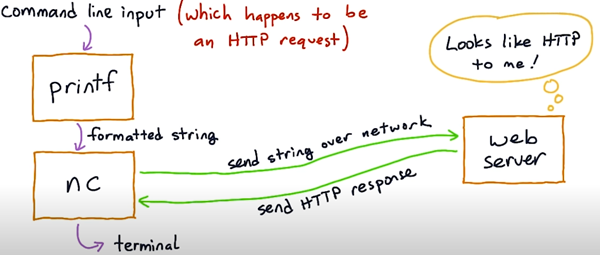 command line input (which happens to be
an HTTP request)
printf
formatted string
nc
terminal
send string over network
send HTTP response
web
server
Looks like HTTP
to me!